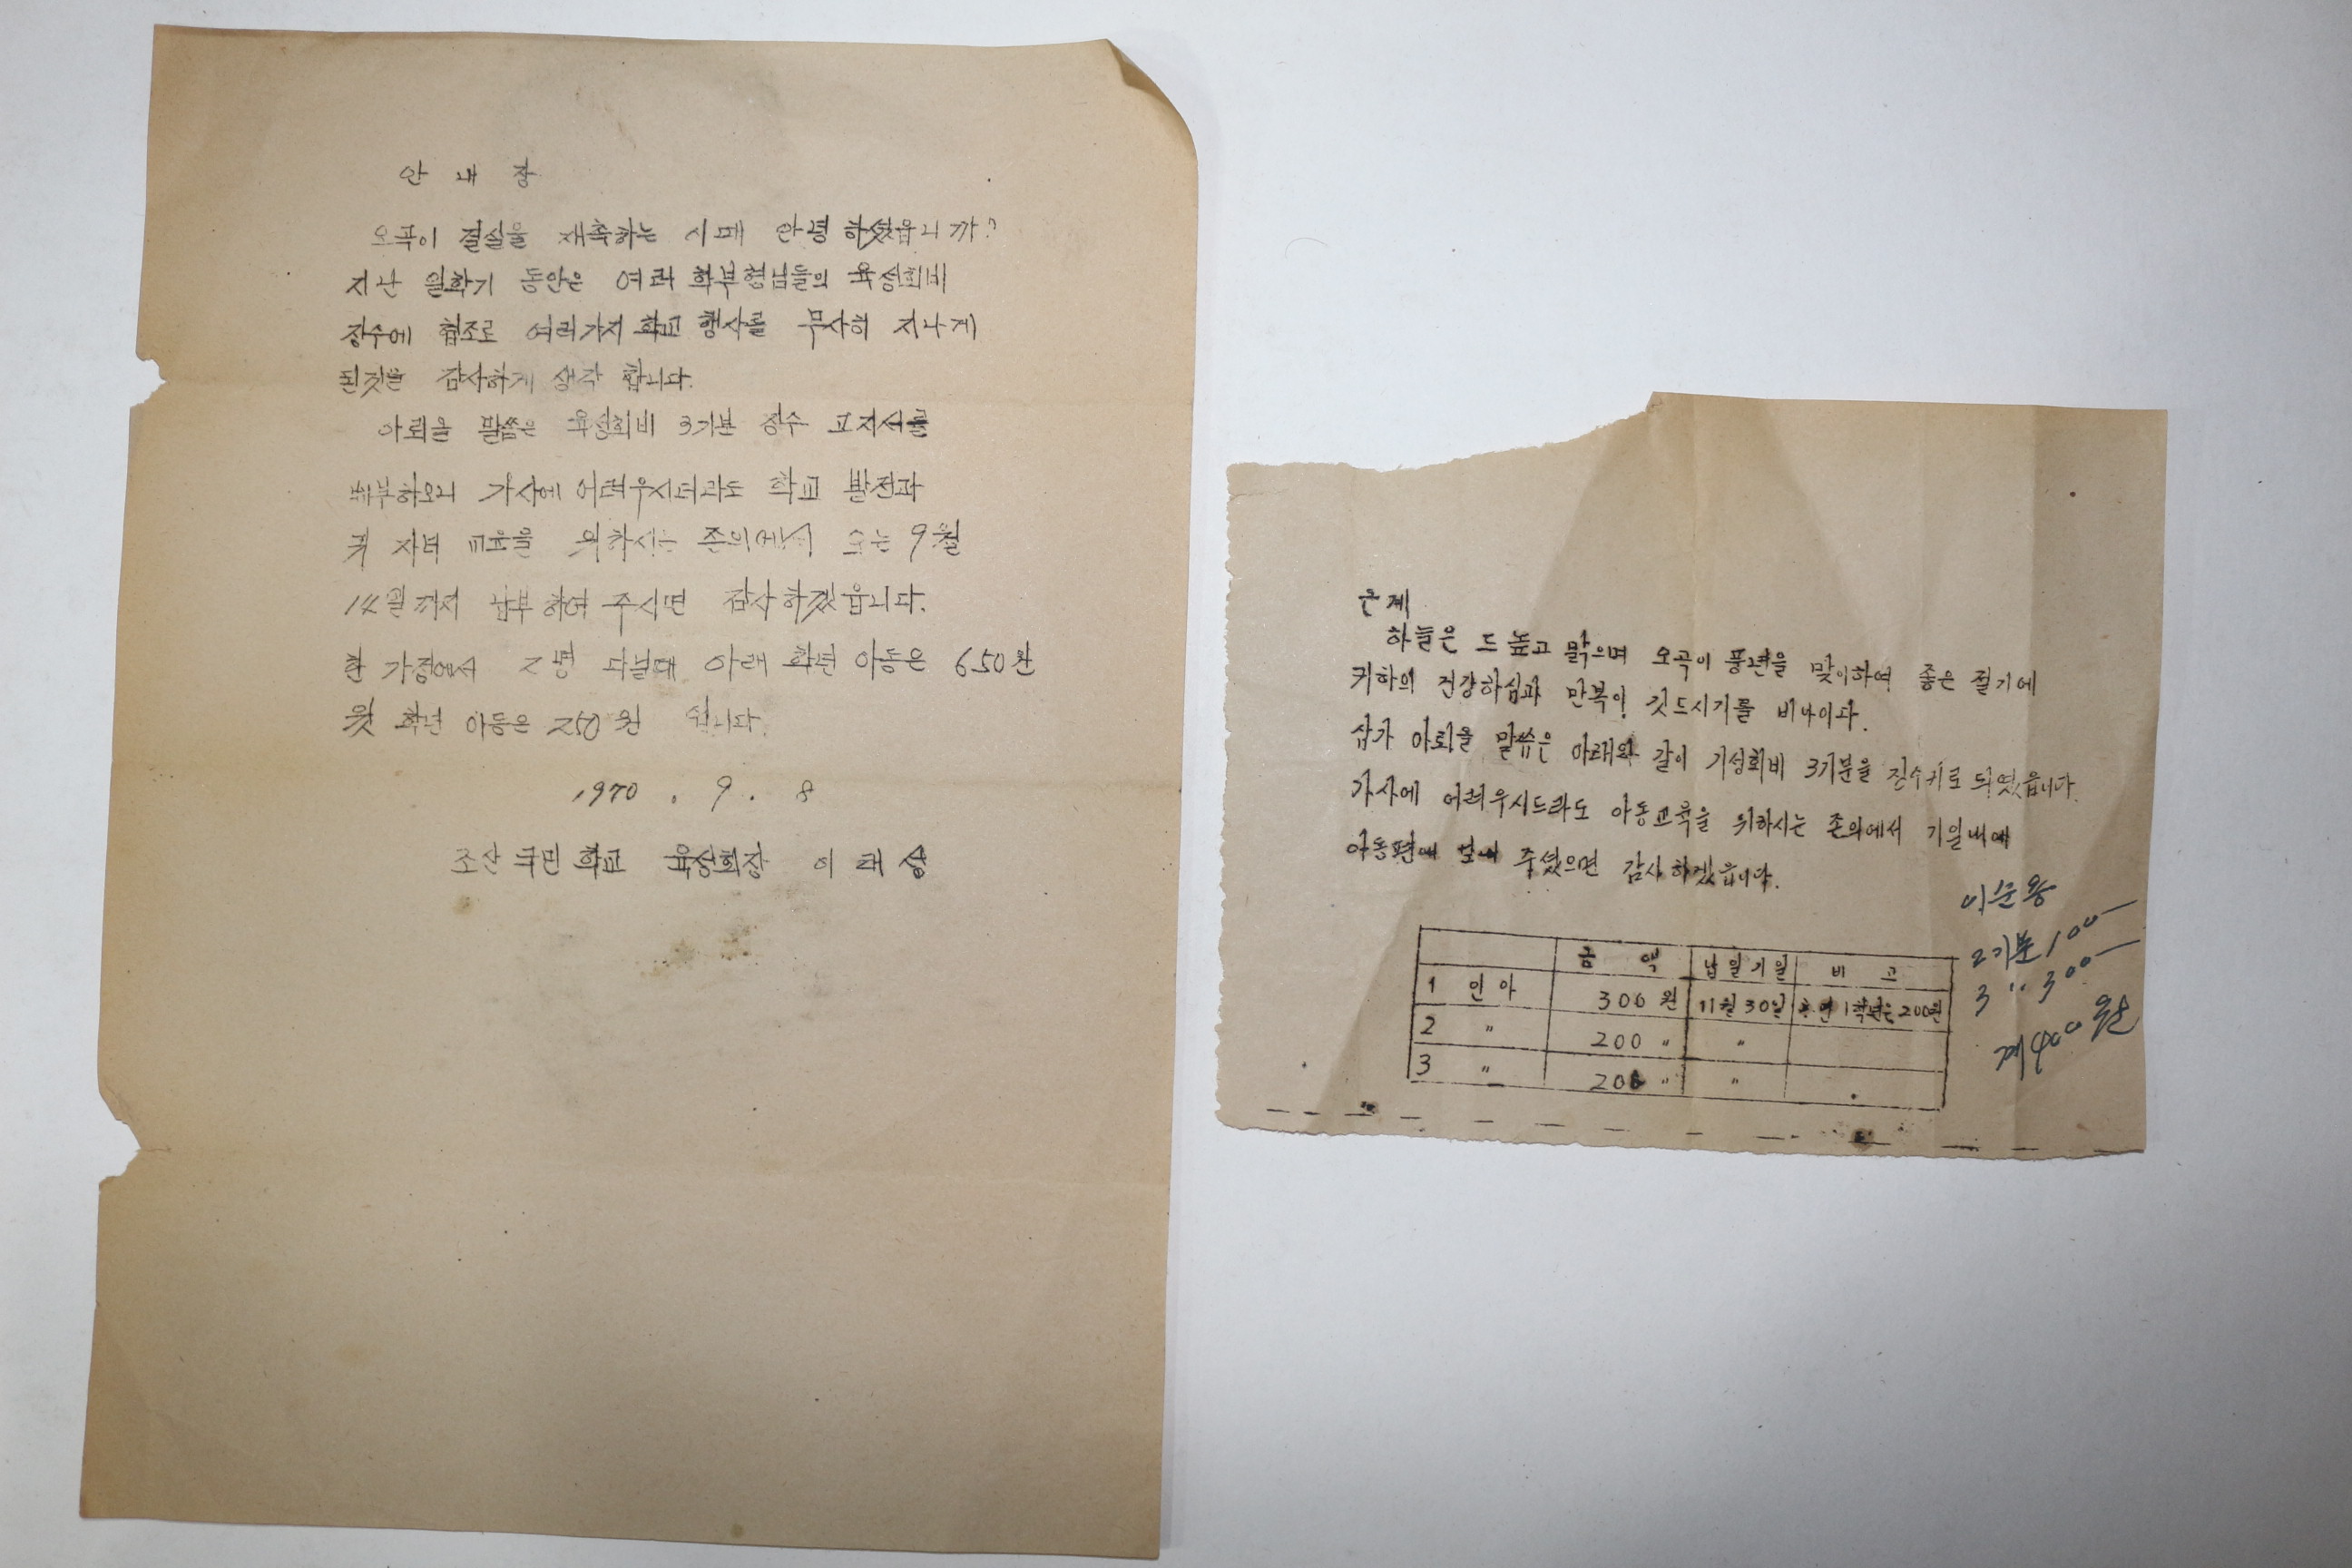 안 내 장
오곡이 결실을 재촉하는 시때 안녕 하셨읍니까?
지난 일학기 동안은 여러 학부형님들의 육성회비
징수에 협조로 여러가지 학교 행사를 무사히 지나게
된것을 감사하게 생각 합니다.
아뢰올 말씀은 육성회비 3기분 징수 고지서를
배부하오니 가사에 어려우시더라도 학교 발전과
귀 자녀 교육을 위하시는 존의에서 오는 9월
14일까지 납부하여 주시면 감사하겠읍니다.
한 가정에서 2명 다닐때 아래 학년 아동은 650원
윗 학년 아동은 250원 입니다.
1970 . 9 . 8
조산국민학교 육성회장 이 태 성
근계
하늘은 드높고 맑으며 오곡이 풍년을 맞이하여 좋은 절기에
귀하의 건강하심과 만복이 깃드시기를 비나이다.
삼가 아뢰올 말씀은 아래와 같이 기성회비 3기분을 징수키로 되였읍니다.
가사에 어려우시드라도 아동교육을 위하시는 존의에서 기일내에
아동편에 보내 주셨으면 감사하겠읍니다.
금 액 납일기일 비 고
1 인 아 300 원 11월 30일 1학년은 200원
2 〃 200 〃 〃
3 〃 200 〃 〃
이순용
2기분 100—
3 〃 300—
계 400원